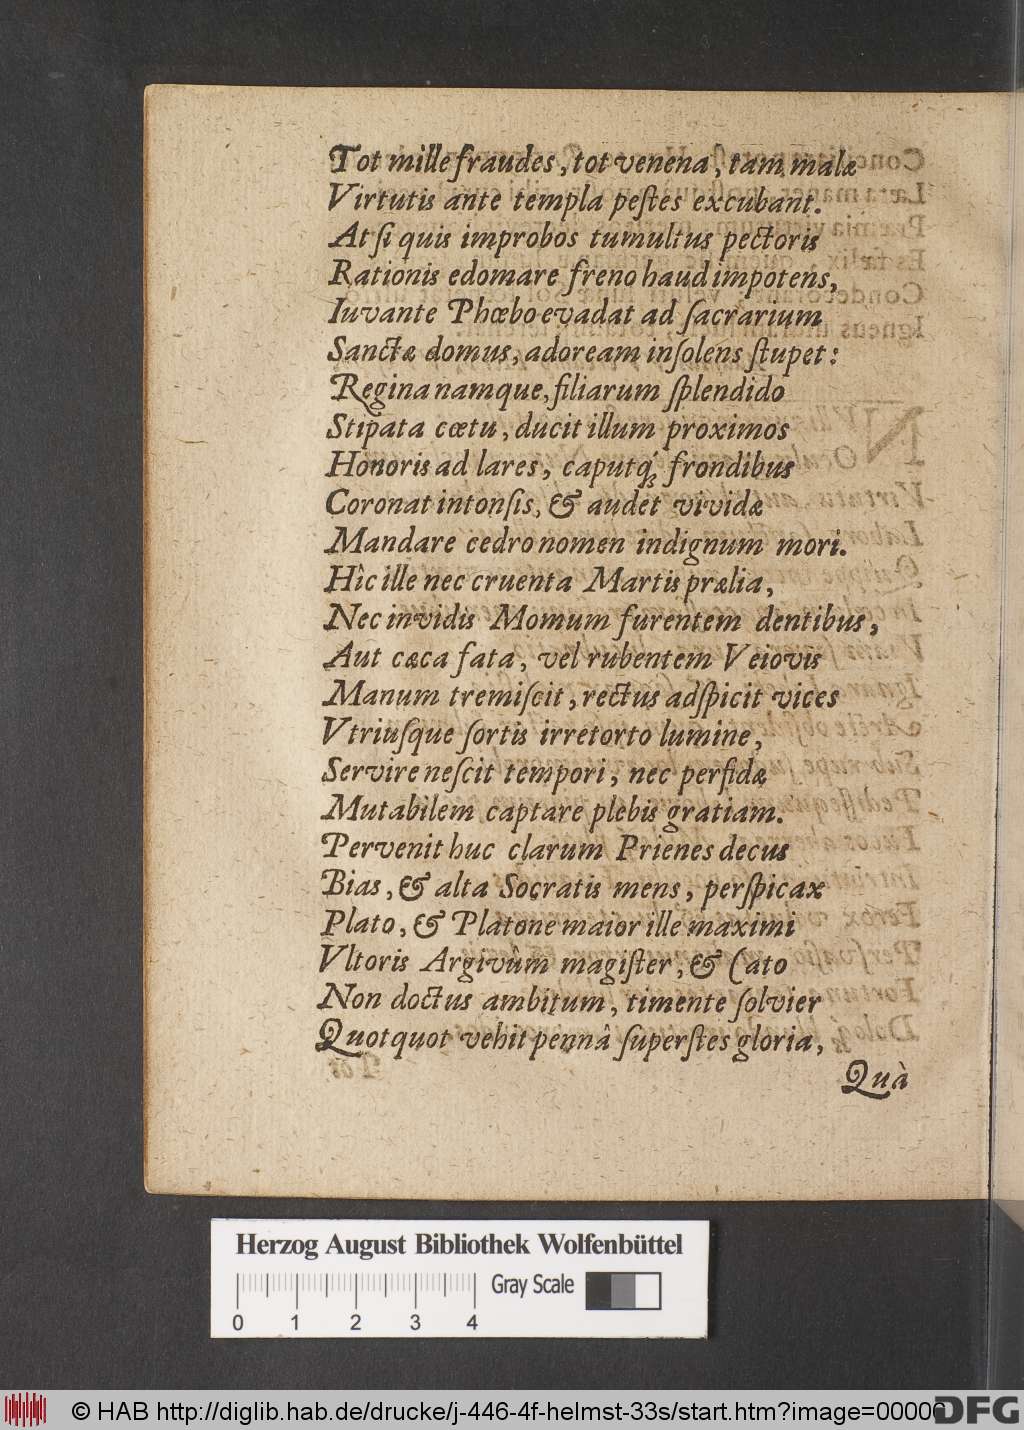 Tot mille fraudes, tot venena, tam malæ
Virtutis ante templa peſtes excubant.
At ſi quis improbos tumultus pectoris
Rationis edomare freno haud impotens,
Iuvante Phœbo evadat ad ſacrarium
Sanctæ domus, adoream inſolens ſtupet:
Regina namque, filiarum ſplendido
Stipata cœtu, ducit illum proximos
Honoris ad lares, caputq́; frondibus
Coronat intonſis, & audet vividæ
Mandare cedro nomen indignum mori.
Hîc ille nec cruenta Martis prælia,
Nec invidis Momum furentem dentibus,
Aut cæca fata, vel rubentem Veiovis
Manum tremiſcit, rectus adſpicit vices
Vtriuſque ſortis irretorto lumine,
Servire neſcit tempori, nec perfidæ
Mutabilem captare plebis gratiam.
Pervenit huc clarum Prienes decus
Bias, & alta Socratis mens, perſpicax
Plato, & Platone maior ille maximi
Vltoris Argivûm magiſter, & Cato
Non doctus ambitum, timente ſolvier
Quotquot vehit pennâ ſuperſtes gloria,
Quà
Herzog August Bibliothek Wolfenbüttel
Gray Scale
0 1 2 3 4
© HAB http://diglib.hab.de/drucke/j-446-4f-helmst-33s/start.htm?image=00006
DFG